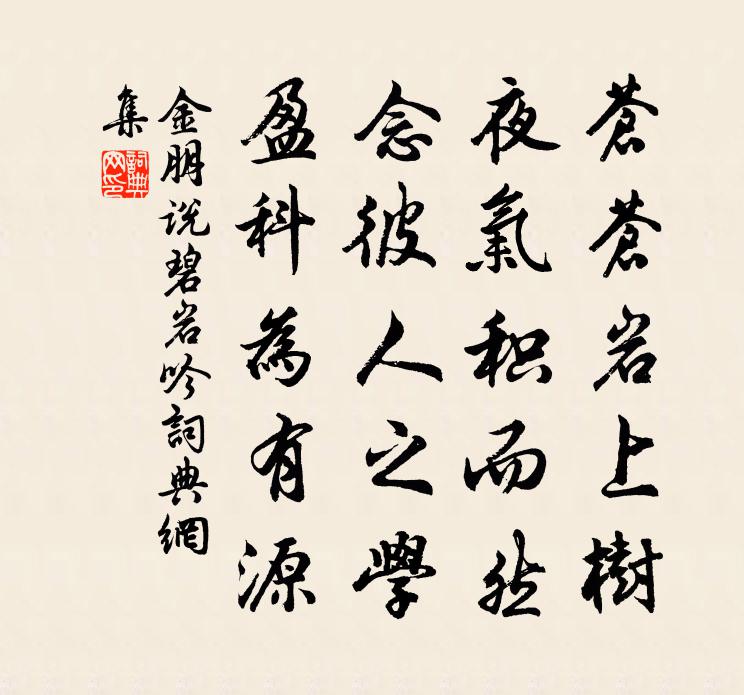 蒼蒼岩上樹
夜氣积而然
念彼人之學
盈科為有源
金朋说碧岩吟詞典網
集
詞典
网印